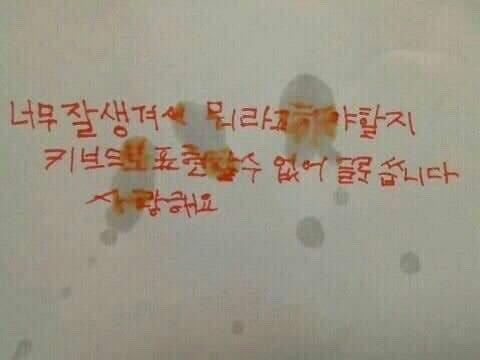 너무 잘생겨서 뭐라고해야할지
키브드로 표현할수 없어 글로씁니다
사랑해요